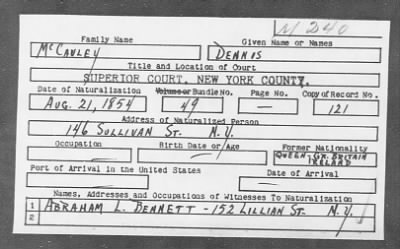 M 240
Family Name Given Name or Names
McCAULEY DENNIS
Title and Location of Court
SUPERIOR COURT, NEW YORK COUNTY.
Date of Naturalization Volume or Bundle No. Page No. Copy of Record No.
AUG. 21, 1854 49 — 121
Address of Naturalized Person
146 SULLIVAN ST. N.Y.
Occupation Birth Date or Age Former Nationality
QUEEN-GR. BRITAIN
IRELAND
Port of Arrival in the United States Date of Arrival
Names, Addresses and Occupations of Witnesses To Naturalization
1 ABRAHAM L. BENNETT - 152 LILLIAN ST. N.Y.
2